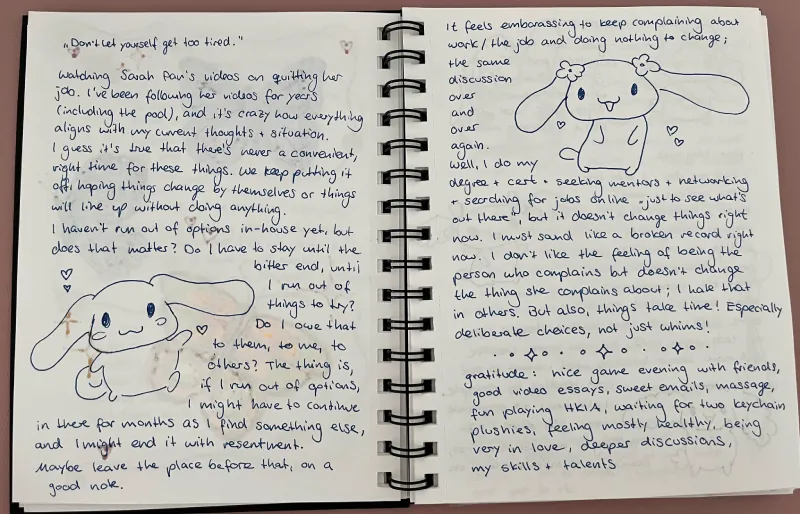 „Don't let yourself get too tired."
Watching Sarah Pan's videos on quitting her
job. I've been following her videos for years
(including the pool), and it's crazy how everything
aligns with my current thoughts + situation.
I guess it's true that there's never a convenient,
right time for these things. We keep putting it
off, hoping things change by themselves or things
will line up without doing anything.
I haven't run out of options in-house yet, but
does that matter? Do I have to stay until the
bitter end, until
I run out of
things to try?
Do I owe that
to them, to me, to
others? The thing is,
if I run out of options,
I might have to continue
in there for months as I find something else,
and I might end it with resentment.
Maybe leave the place before that, on a
good note.
It feels embarassing to keep complaining about
work/the job and doing nothing to change;
the same
discussion
over
and
over
again.
Well, I do my
degree + cert + seeking mentors + networking
+ searching for jobs online „just to see what's
out there", but it doesn't change things right
now. I must sand like a broken record right
now. I don't like the feeling of being the
person who complains but doesn't change
the thing she complains about; I hate that
in others. But also, things take time! Especially
deliberate choices, not just whims!
gratitude: nice game evening with friends,
good video essays, sweet emails, massage,
fun playing HKIA, waiting for two keychain
plushies, feeling mostly healthy, being
very in love, deeper discussions,
my skills + talents